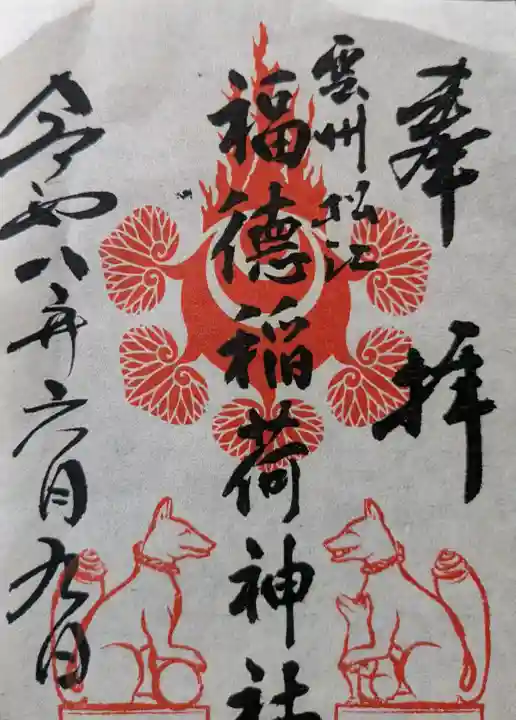 奉拝
雲州松江
福徳稲荷神社
令和八年六月九日